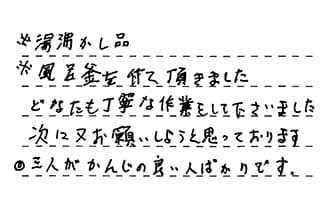 ※湯沸かし品
※風呂釜を付て頂きました
どなたも丁寧な作業をして下さいました
次に又お願いしようと思っております
◎三人がかんじの良い人ばかりです。